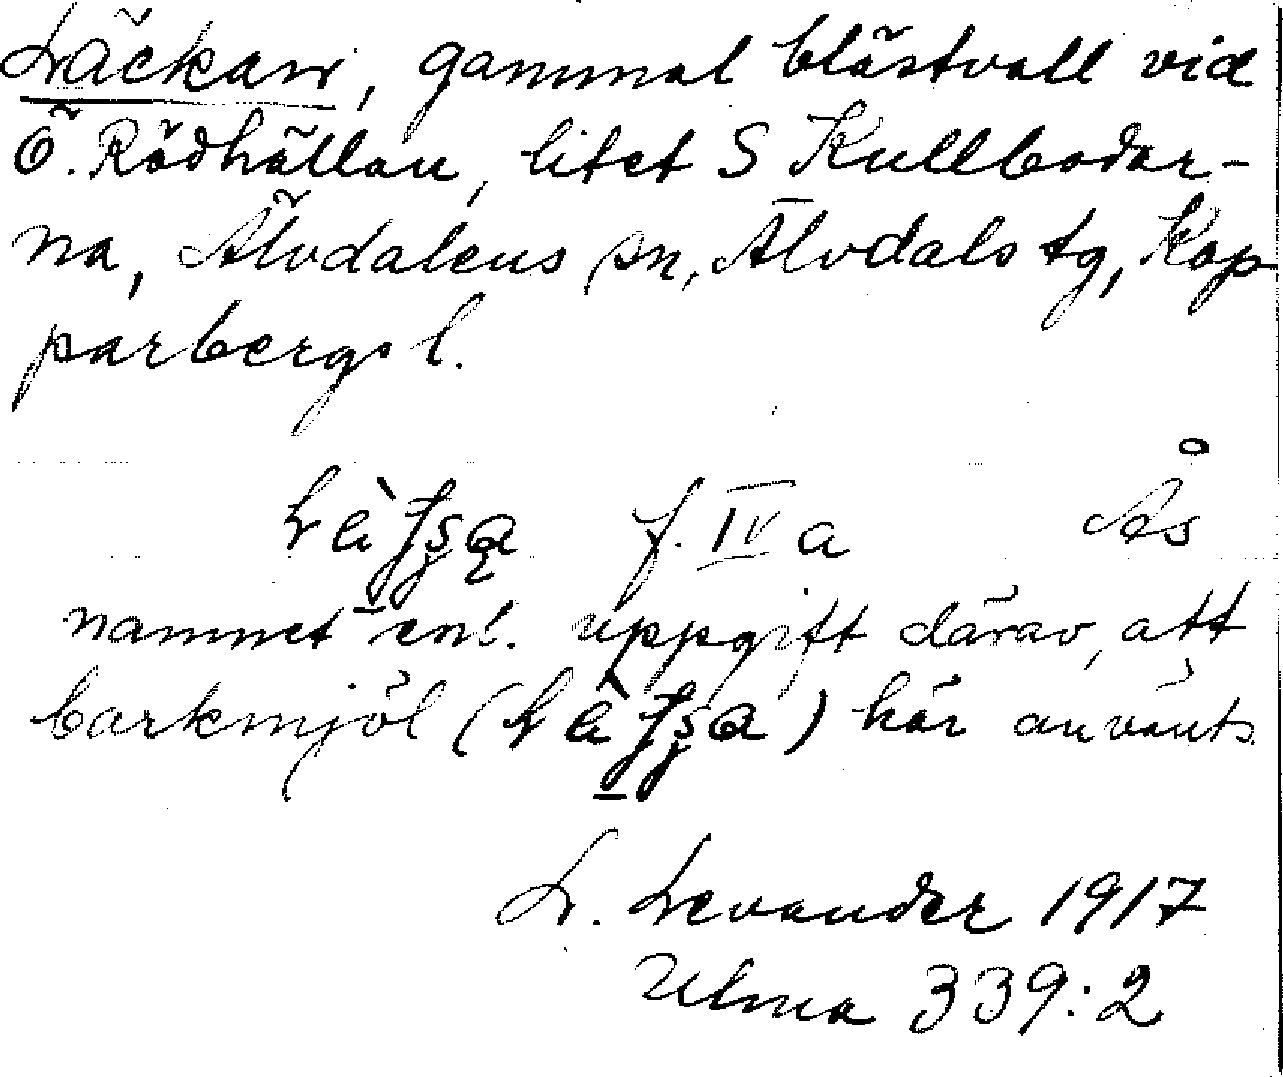 Läckan, gammal blästvall vid
Ö. Rödhällan, litet S Kullbodar-
na, Älvdalens sn, Älvdals tg, Kop
parbergs l.
f. IV a Ås
namnet enl. uppgift därav, att
barkmjöl ( ) här använts.
L. Levander 1917
Ulma 339:2